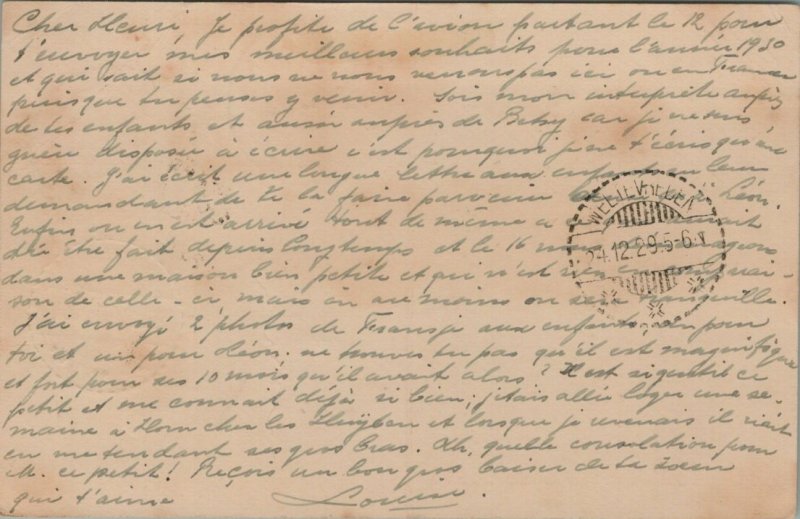 Cher Henri, Je profite de l'avion partant le 12 pour
t'envoyer mes meilleurs souhaits pour l'année 1930
et qui sait si nous ne nous verrons pas ici ou en France
puisque tu penses y venir. Sois mon interprète auprès
de tes enfants et aussi auprès de Betsy car je ne suis
guère disposée à écrire c'est pourquoi je ne t'écris qu'une
carte. J'ai écrit une longue lettre aux enfants en leur
demandant de te la faire parvenir Léon.
Enfin on en est arrivé tout de même à
dû être fait depuis longtemps et le 16 nous
dans une maison bien petite et qui n'est rien en comparai-
son de celle-ci mais on au moins on sera tranquille.
J'ai envoyé 2 photos de Fransje aux enfants un pour
toi et un pour Léon, ne trouves tu pas qu'il est magnifique
et fort pour ses 10 mois qu'il avait alors? Il est si gentil ce
petit et me connait déjà si bien, j'étais allée loger une se-
maine à Horn chez les Huyben et lorsque je revenais il riait
en me tendant ses gros bras. Ah, quelle consolation pour
M. ce petit! Reçois un bon gros baiser de ta soeur
qui t'aime Louise.
WELTEVREDEN
24.12.29.5-6 V